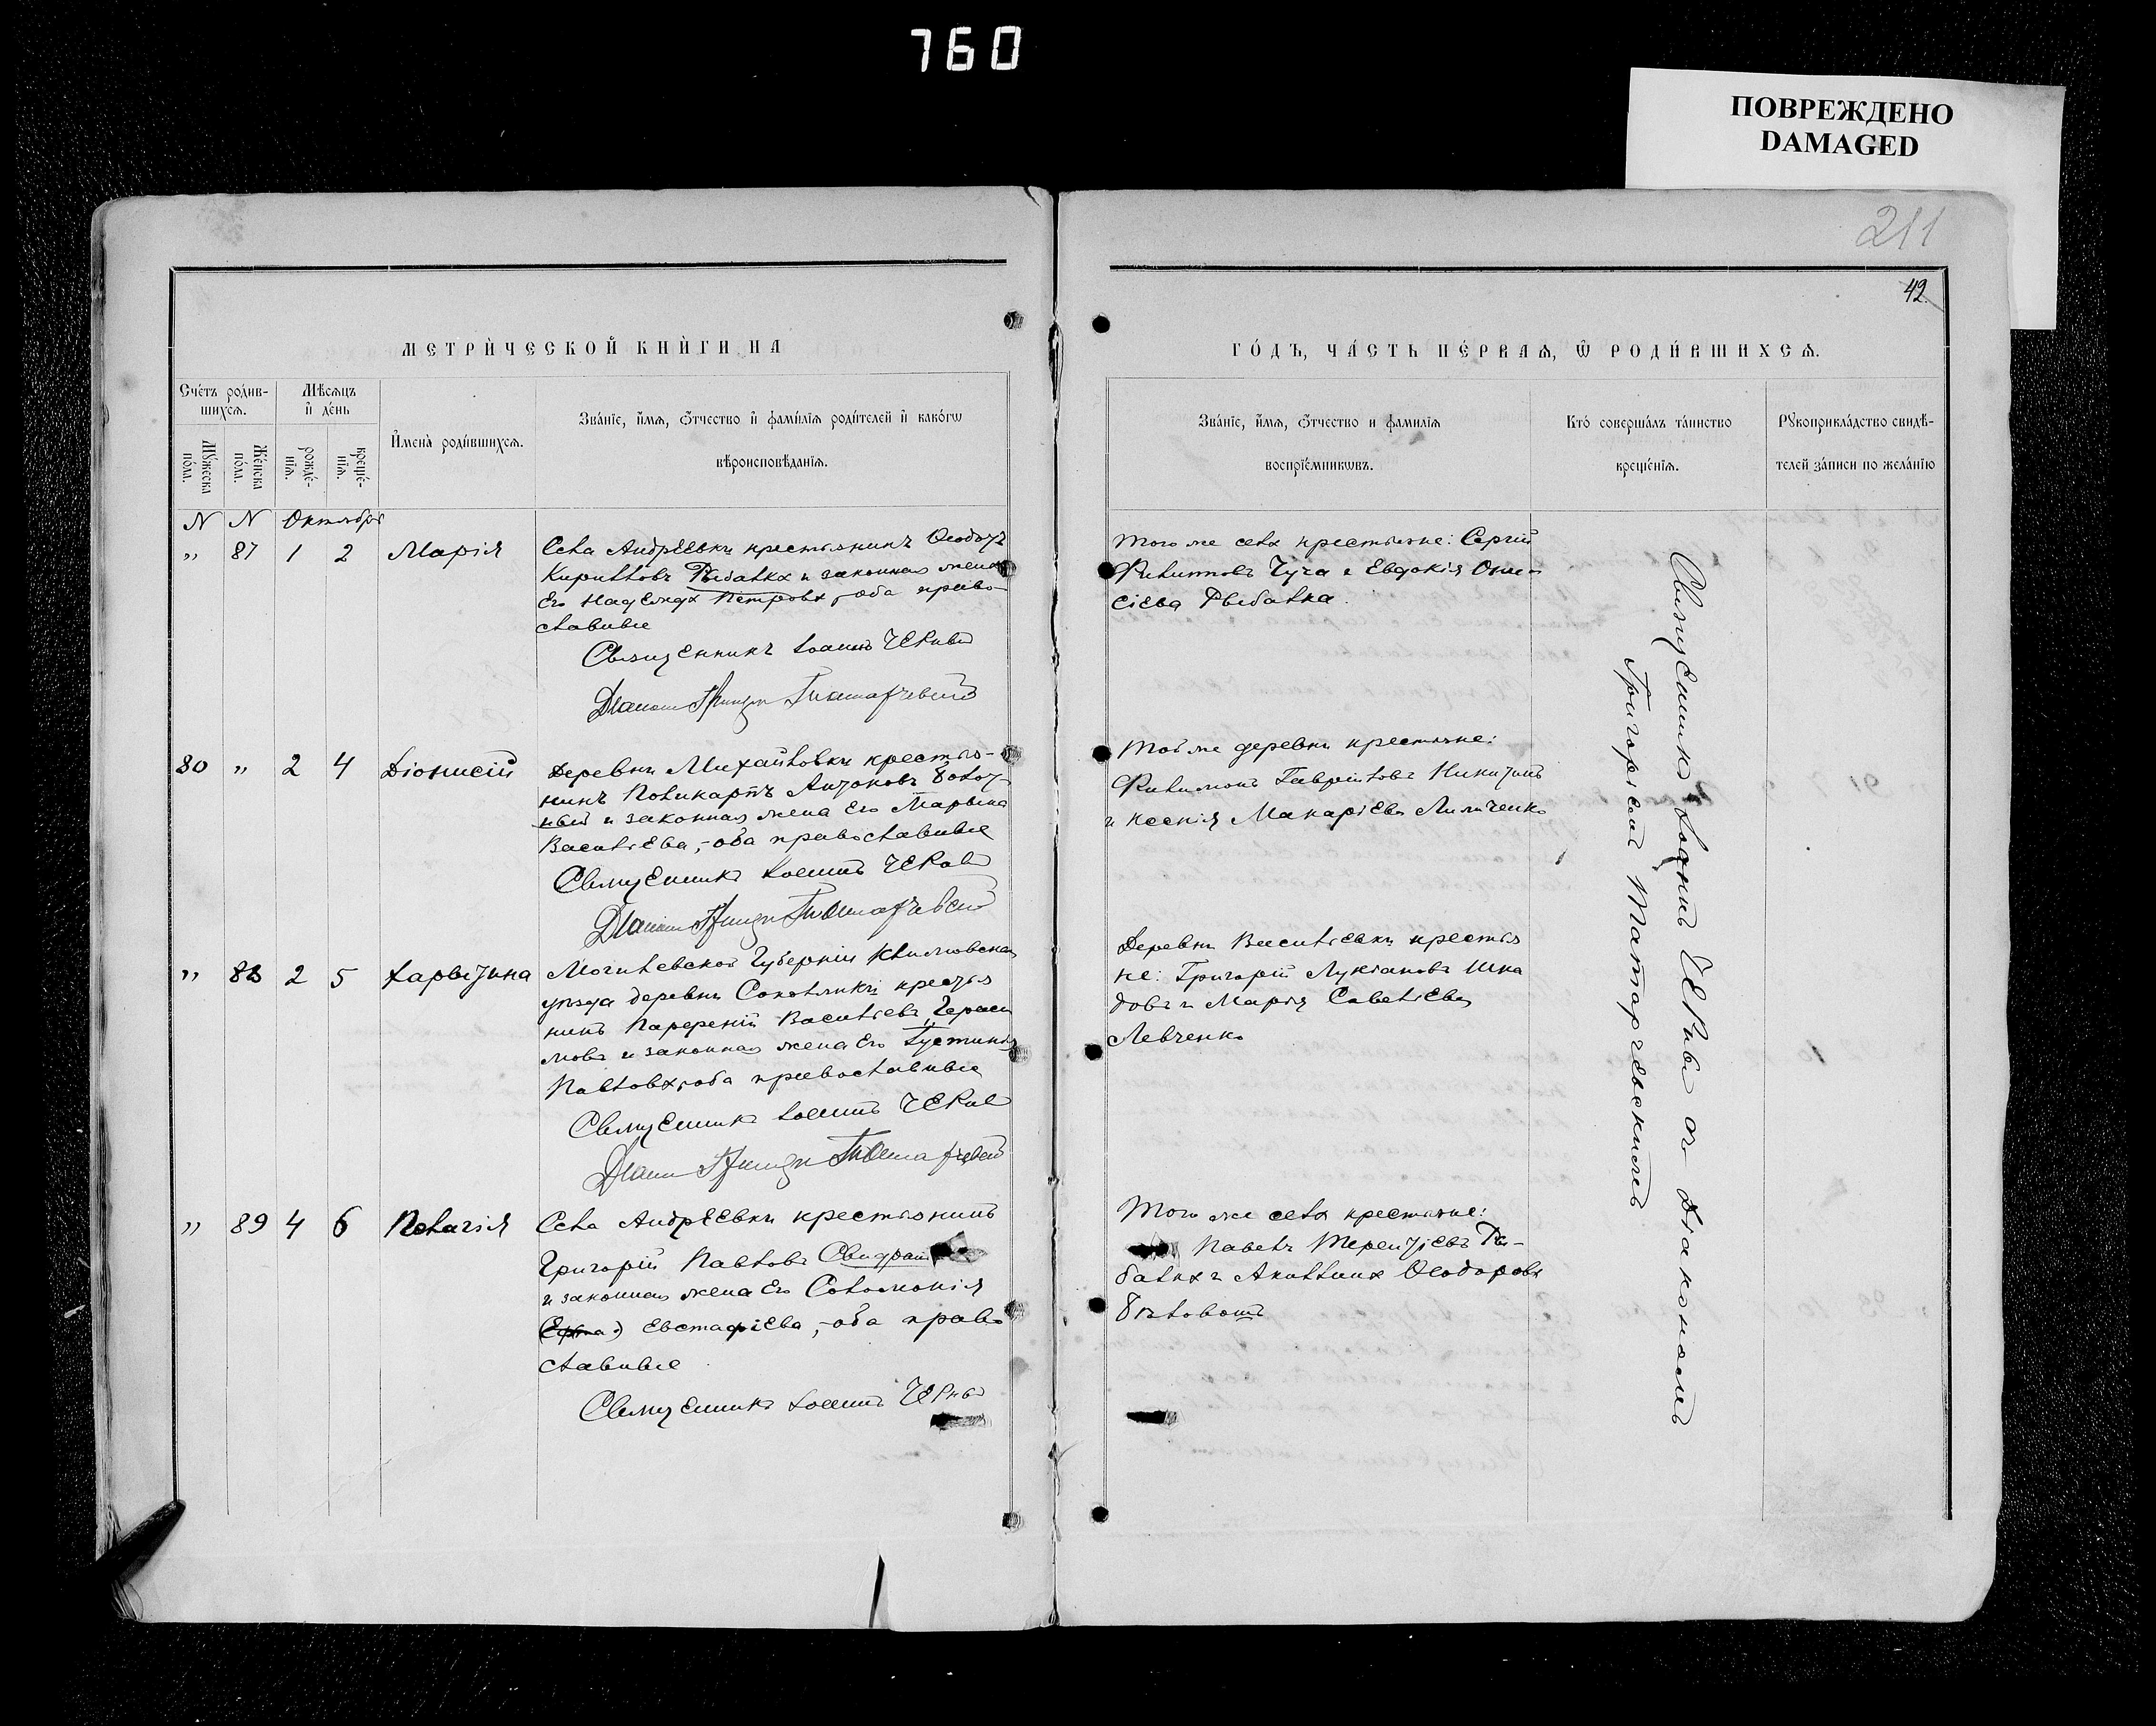 760
ПОВРЕЖДЕНО
DAMAGED
211
42
МЕТРИЧЕСКОЙ КНИГИ НА
ГОДЪ, ЧАСТЬ ПЕРВАЯ, Ѡ РОДИВШИХСЯ.
Счетъ родив-
шихся.
Мужеска пола.
Женска пола.
Мѣсяцъ и день
рожде-
нія.
креще-
нія.
Имена родившихся.
Званіе, имя, отчество и фамилія родителей и какогѡ
вѣроисповѣданія.
Званіе, имя, отчество и фамилія
воспріемникѡвъ.
Кто совершалъ таинство
крещенія.
Рукоприкладство свидѣ-
телей записи по желанію
N N Октября
" 87 1 2 Марія
Села Андрѣевки крестьянинъ Ѳеодотъ
Кирилловъ Рыбалка и законная жена
Его Надежда Петрова, оба право-
славные
Священникъ Іоаннъ
Того же села крестьяне: Сергій
Филипповъ Чуча и Евдокія Они-
сіева Рыбалка.
80 " 2 4 Діонисій
Деревни Михайловки крестья-
нинъ Поликарпъ Антоновъ
и законная жена Его Марѳа
Васильева, оба православные
Священникъ Іоаннъ
Той же деревни крестьяне:
Филимонъ Гавріиловъ Никитинъ
и Ксенія Макаріева
" 88 2 5 Харитина
Могилевской Губерніи Климовскаго
уѣзда деревни крестья
нинъ Парѳеній Васильевъ Гераси
мовъ и законная жена Его Іустинія
Павлова, оба православные
Священникъ Іоаннъ
Деревни Васильевки крестья
не: Григорій Лукіановъ Шка
довъ и Марія Савеліева
Левченко
" 89 4 6 Пелагія
Села Андрѣевки крестьянинъ
Григорій Павловъ
и законная жена Его Соломонія
Евстафіева, оба право
славные
Священникъ Іоаннъ
Того же села крестьяне:
Павелъ Терентіевъ Ры-
балка и Акилина Ѳеодорова
Священникъ Іоаннъ со діакономъ
Григоріемъ